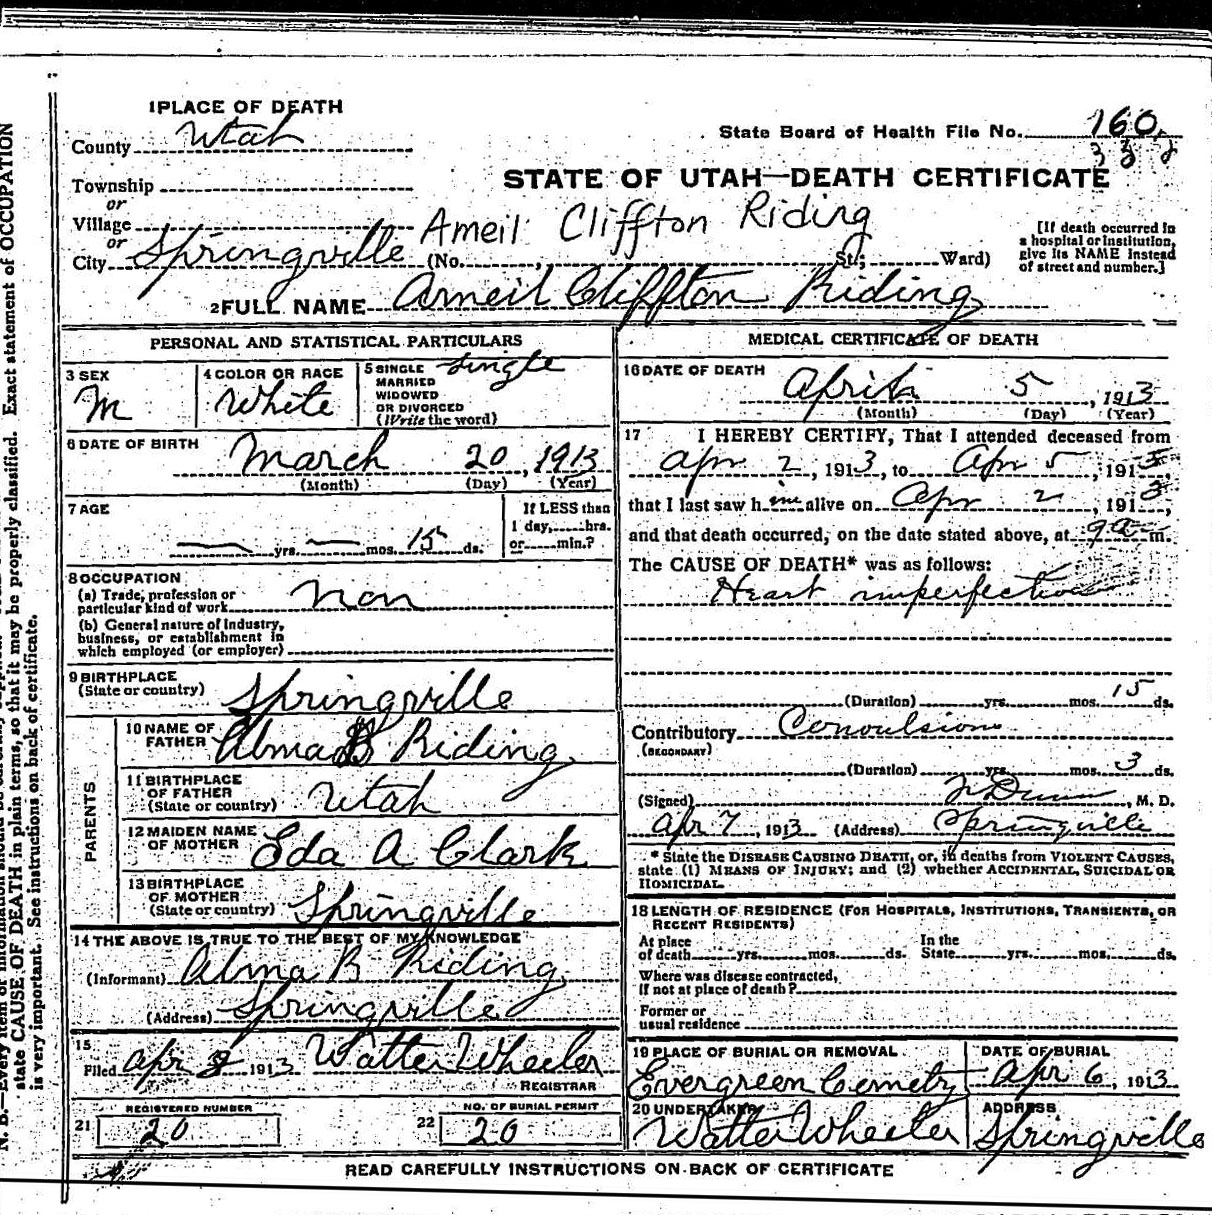 1 PLACE OF DEATH
County Utah
State Board of Health File No. 160
Township
STATE OF UTAH—DEATH CERTIFICATE
or
Village
Ameil Cliffton Riding
or
City Springville (No. , St.; Ward)
[If death occurred in a hospital or institution, give its NAME instead of street and number.]
2 FULL NAME Ameil Cliffton Riding
PERSONAL AND STATISTICAL PARTICULARS
3 SEX
M
4 COLOR OR RACE
White
5 SINGLE MARRIED WIDOWED OR DIVORCED (Write the word)
Single
6 DATE OF BIRTH
March 20, 1913
(Month) (Day) (Year)
7 AGE
— yrs. — mos. 15 ds.
If LESS than
1 day,......hrs.
or......min.?
8 OCCUPATION
(a) Trade, profession or
particular kind of work non
(b) General nature of Industry,
business, or establishment in
which employed (or employer)
9 BIRTHPLACE
(State or country) Springville
PARENTS
10 NAME OF
FATHER Alma B Riding
11 BIRTHPLACE
OF FATHER
(State or country) Utah
12 MAIDEN NAME
OF MOTHER Eda A Clark
13 BIRTHPLACE
OF MOTHER
(State or country) Springville
14 THE ABOVE IS TRUE TO THE BEST OF MY KNOWLEDGE
(Informant) Alma B Riding
(Address) Springville
15
Filed Apr 1913 Walter Wheeler
REGISTRAR
REGISTERED NUMBER
21 20
NO. OF BURIAL PERMIT
22 20
MEDICAL CERTIFICATE OF DEATH
16 DATE OF DEATH
April 5, 1913
(Month) (Day) (Year)
17 I HEREBY CERTIFY, That I attended deceased from
Apr 2, 1913, to Apr 5, 1913,
that I last saw him alive on Apr 2, 1913,
and that death occurred, on the date stated above, at 9 a m.
The CAUSE OF DEATH* was as follows:
Heart imperfection
(Duration) yrs. mos. 15 ds.
Contributory Convulsion
(SECONDARY)
(Duration) yrs. mos. 3 ds.
(Signed) Dunn, M. D.
Apr 7, 1913 (Address) Springville
* State the DISEASE CAUSING DEATH, or, in deaths from VIOLENT CAUSES,
state (1) MEANS OF INJURY; and (2) whether ACCIDENTAL, SUICIDAL OR
HOMICIDAL.
18 LENGTH OF RESIDENCE (FOR HOSPITALS, INSTITUTIONS, TRANSIENTS, OR
RECENT RESIDENTS)
At place
of death yrs. mos. ds.
In the
State yrs. mos. ds.
Where was disease contracted,
If not at place of death?
Former or
usual residence
19 PLACE OF BURIAL OR REMOVAL
Evergreen Cemetry
DATE OF BURIAL
Apr 6, 1913
20 UNDERTAKER
Walter Wheeler
ADDRESS
Springville
READ CAREFULLY INSTRUCTIONS ON BACK OF CERTIFICATE
state CAUSE OF DEATH in plain terms, so that it may be properly classified. Exact statement of OCCUPATION
is very important. See instructions on back of certificate.